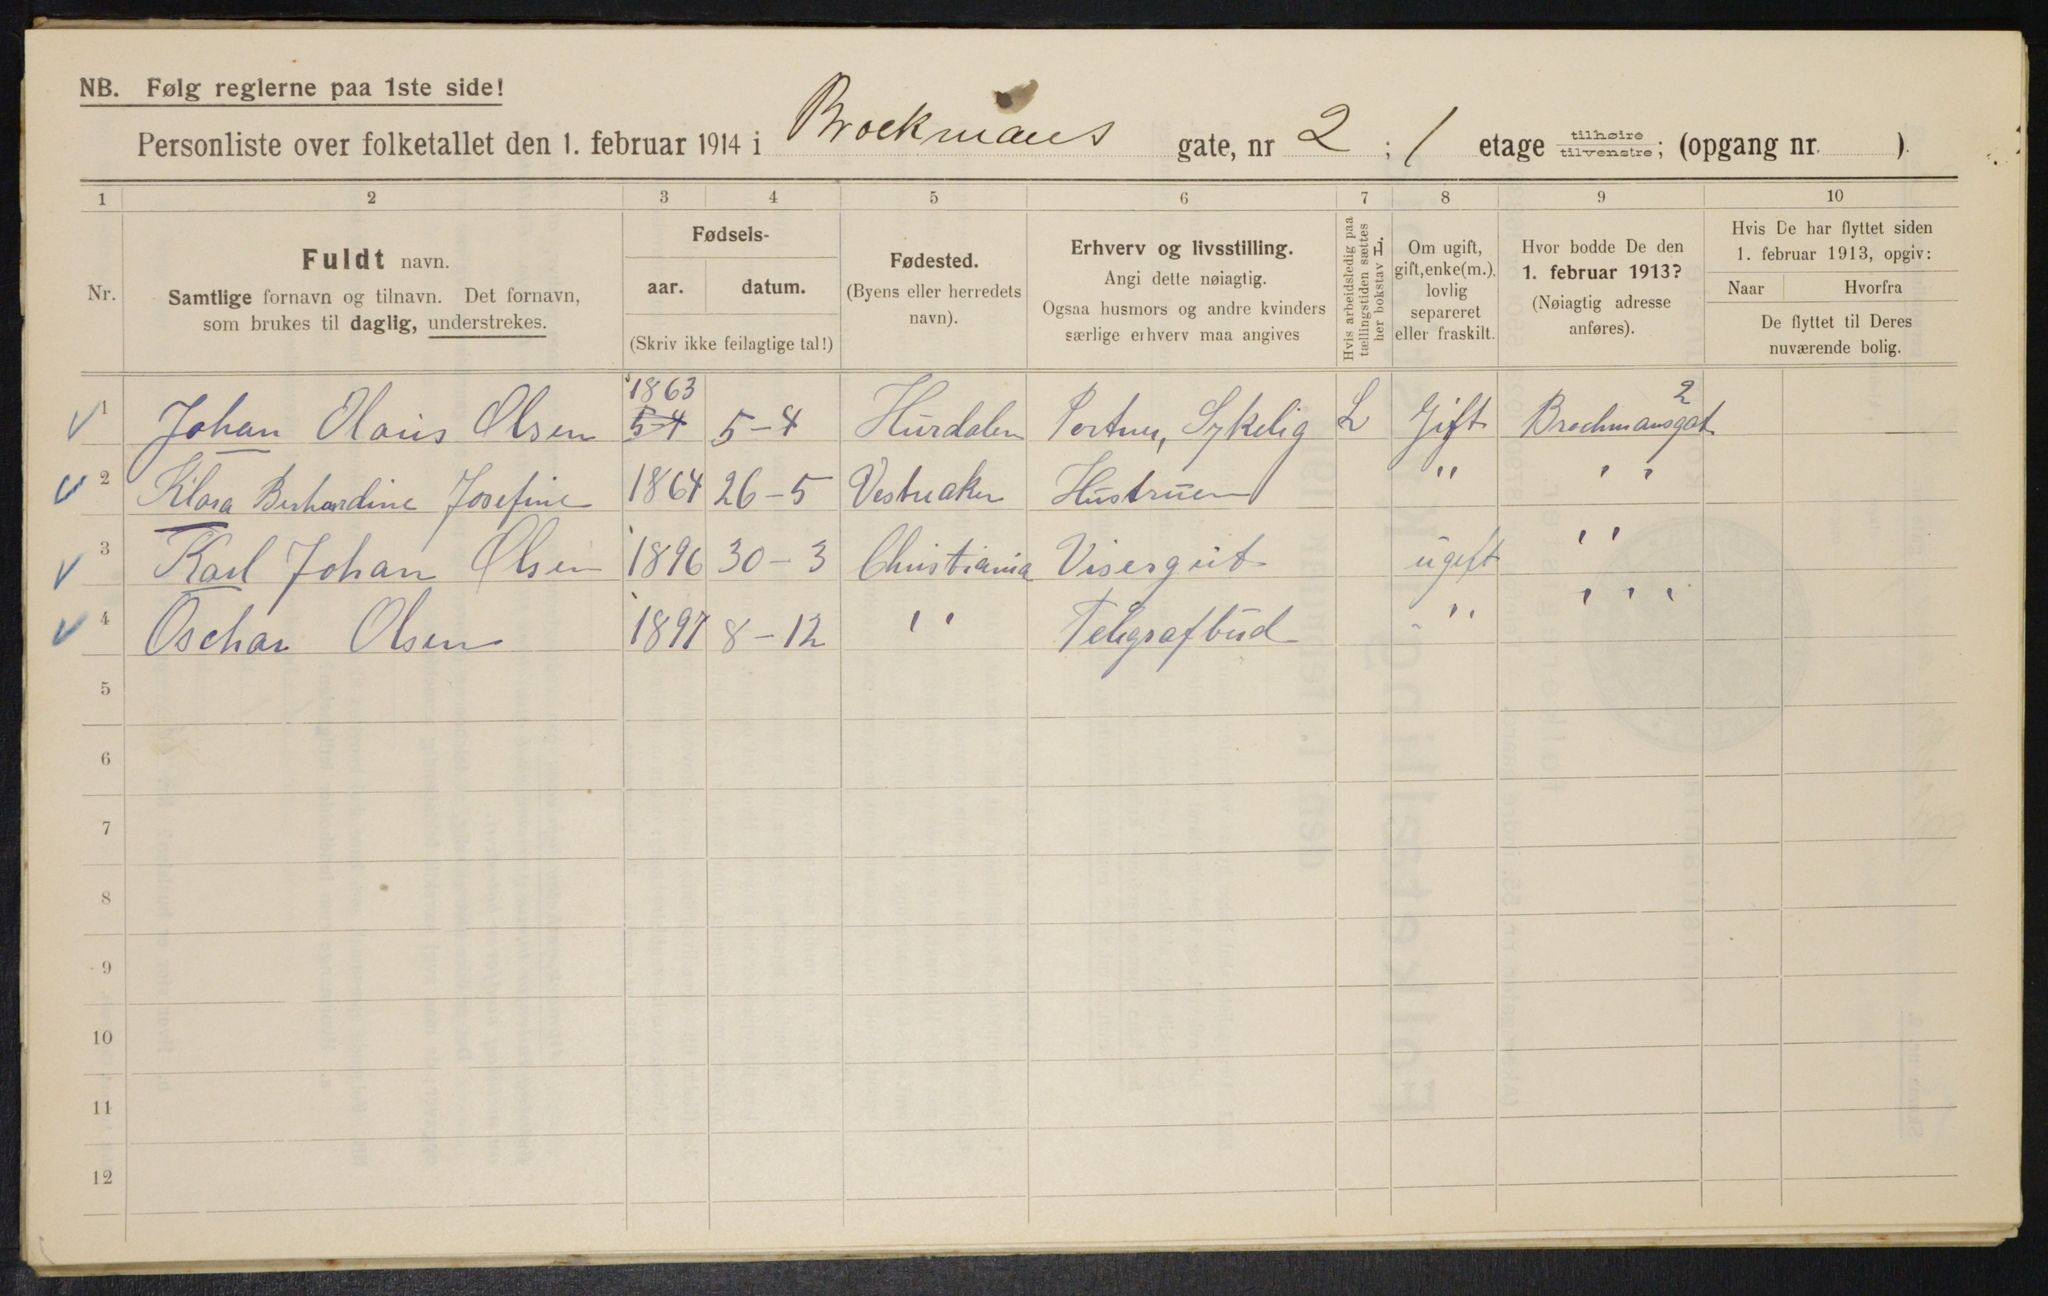 NB. Følg reglerne paa 1ste side!
Personliste over folketallet den 1. februar 1914 i Brockmans gate, nr 2 ; 1 etage tilhøire tilvenstre; (opgang nr. ).
1 2 3 4 5 6 7 8 9 10
Nr.
Fuldt navn.
Samtlige fornavn og tilnavn. Det fornavn,
som brukes til daglig, understrekes.
Fødsels-
aar. datum.
(Skriv ikke feilagtige tal!)
Fødested.
(Byens eller herredets
navn).
Erhverv og livsstilling.
Angi dette nøiagtig.
Ogsaa husmors og andre kvinders
særlige erhverv maa angives
Hvis arbeidsledig paa
tællingstiden sættes
her bokstav L.
Om ugift,
gift, enke(m.),
lovlig
separeret
eller fraskilt.
Hvor bodde De den
1. februar 1913?
(Nøiagtig adresse
anføres).
Hvis De har flyttet siden
1. februar 1913, opgiv:
Naar Hvorfra
De flyttet til Deres
nuværende bolig.
1 Johan Olaus Olsen 1863 54 5-4 Hurdalen Portner, Sykelig L Gift Brochmansgat 2
2 Klara Berhardine Josefine 1864 26-5 Vestreaker Hustruen " " "
3 Karl Johan Olsen 1896 30-3 Christiania Visergut ugift " "
4 Oschar Olsen 1897 8-12 " " Telegrafbud " " " "
5
6
7
8
9
10
11
12